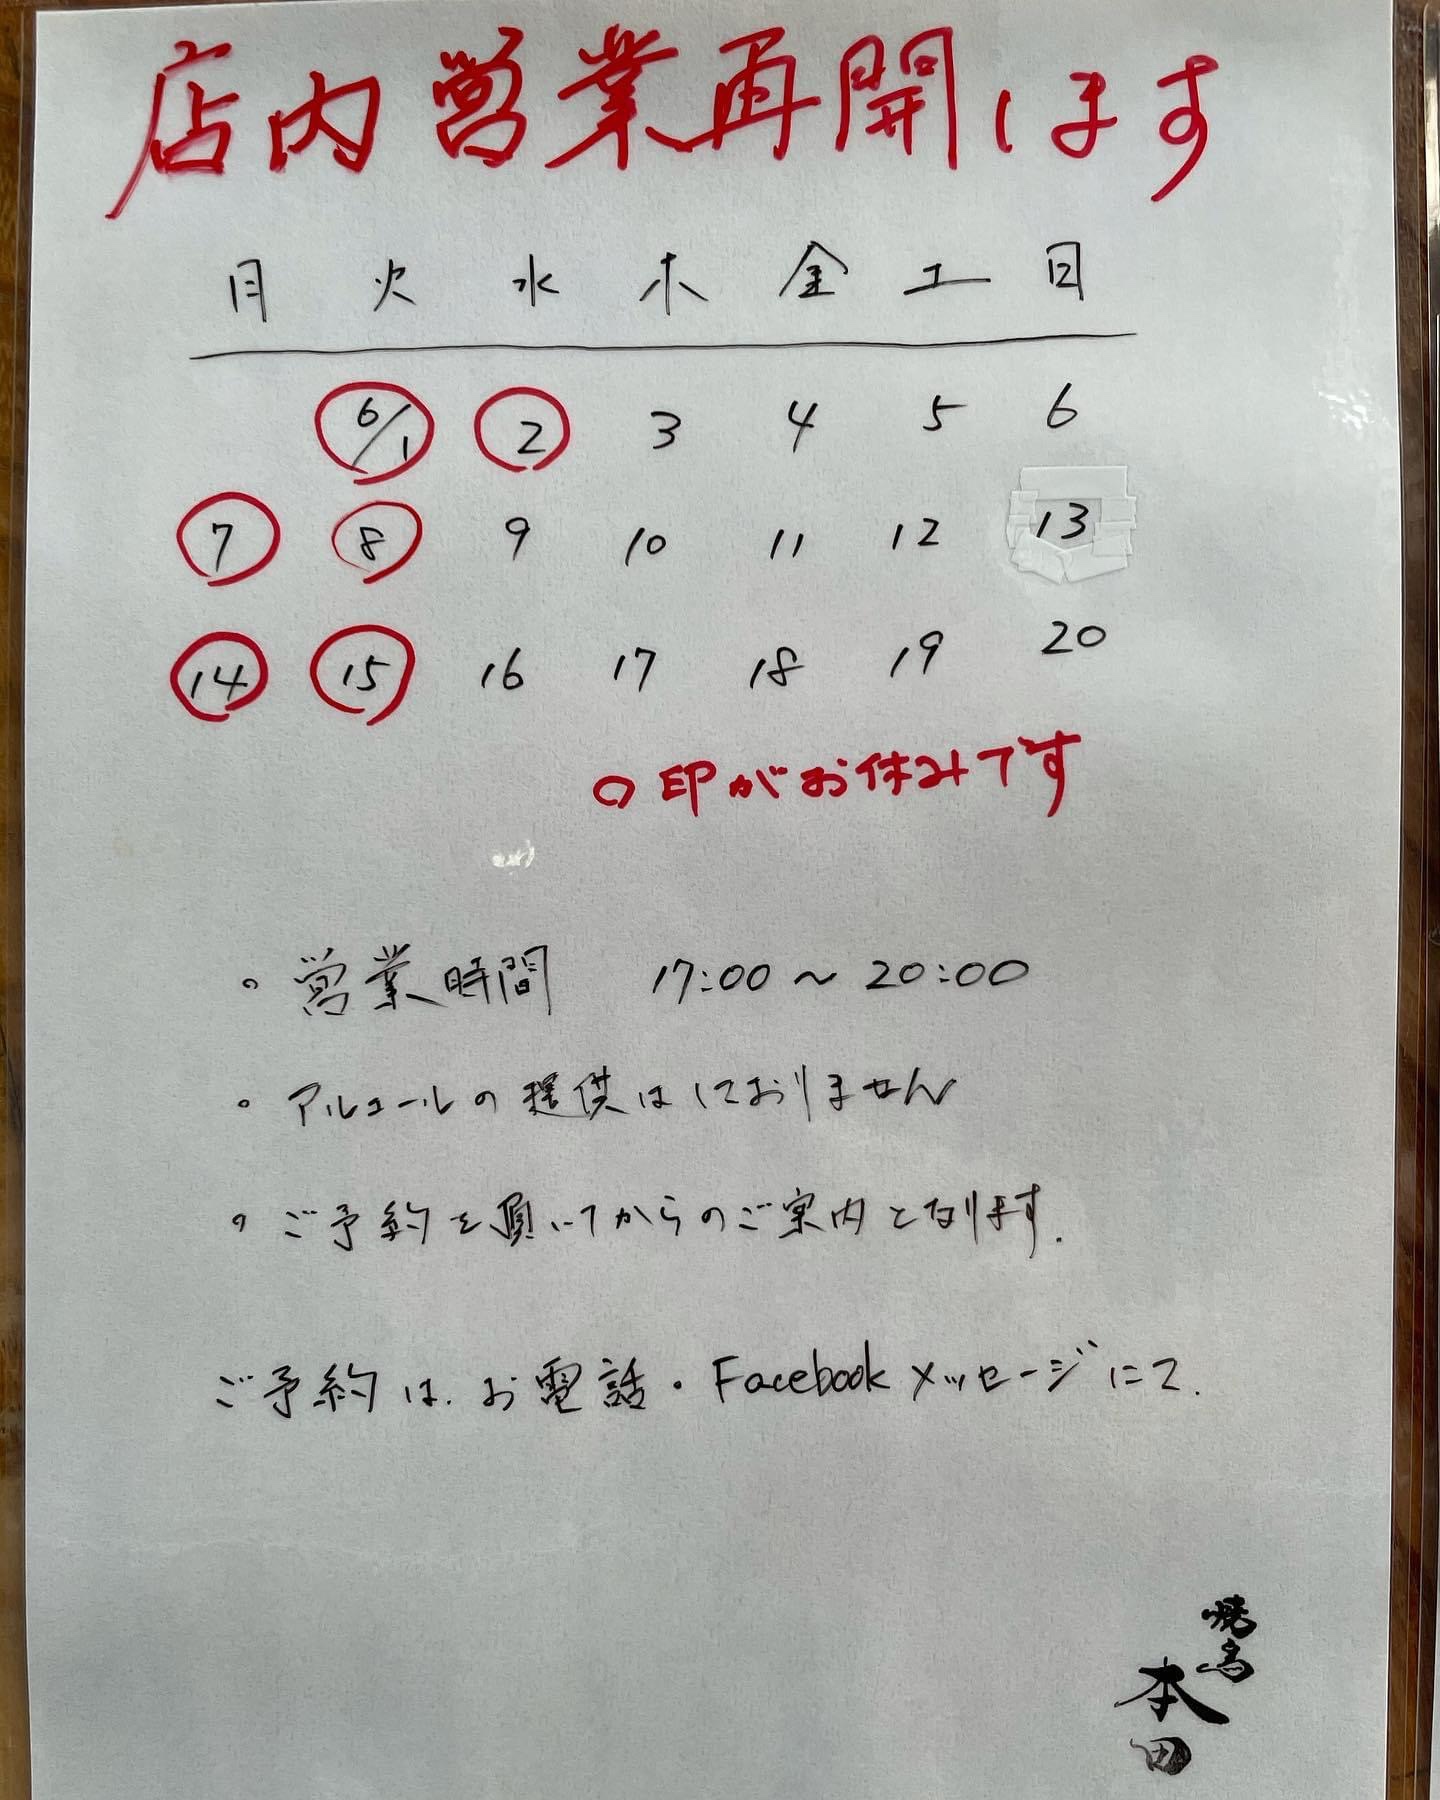 店内営業再開します
月 火 水 木 金 土 日
6/1 2 3 4 5 6
7 8 9 10 11 12 13
14 15 16 17 18 19 20
○印がお休みです
・営業時間 17:00～20:00
・アルコールの提供はしておりません
・ご予約を頂いてからのご案内となります.
ご予約は、お電話・Facebookメッセージにて.
焼鳥
本田